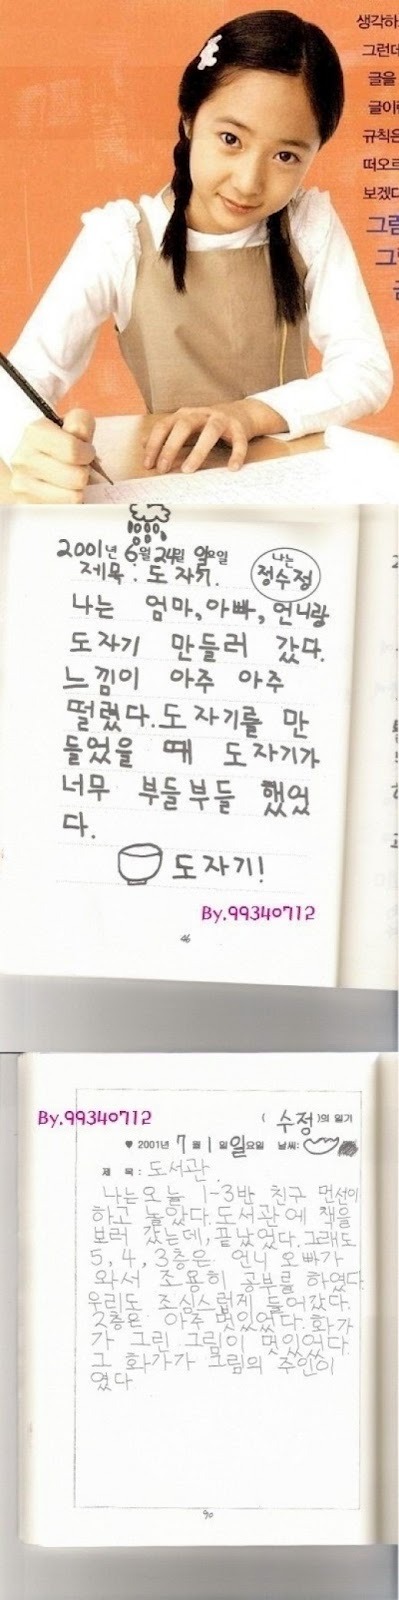 생각하
그런데
글을
글이란
규칙은
떠오르
보겠다
그림
그
2001년 6월 24일 일요일
제목: 도자기.
나는
정수정
나는 엄마, 아빠, 언니랑
도자기 만들러 갔다.
느낌이 아주 아주
떨렸다. 도자기를 만
들었을 때 도자기가
너무 부들부들 했었
다.
도자기!
By.99340712
46
By.99340712
( 수정 )의 일기
♥ 2001년 7월 1일 일요일 날씨:
제 목: 도서관.
나는 오늘 1-3반 친구 먼선이
하고 놀았다. 도서관에 책을
보러 갔는데, 끝났었다. 그래도
5, 4, 3층은 언니 오빠가
와서 조용히 공부를 하였다.
우리도 조심스럽게 들어갔다.
2층은 아주 멋있었다. 화가
가 그린 그림이 멋있었다.
그 화가가 그림의 주인이
였다
90